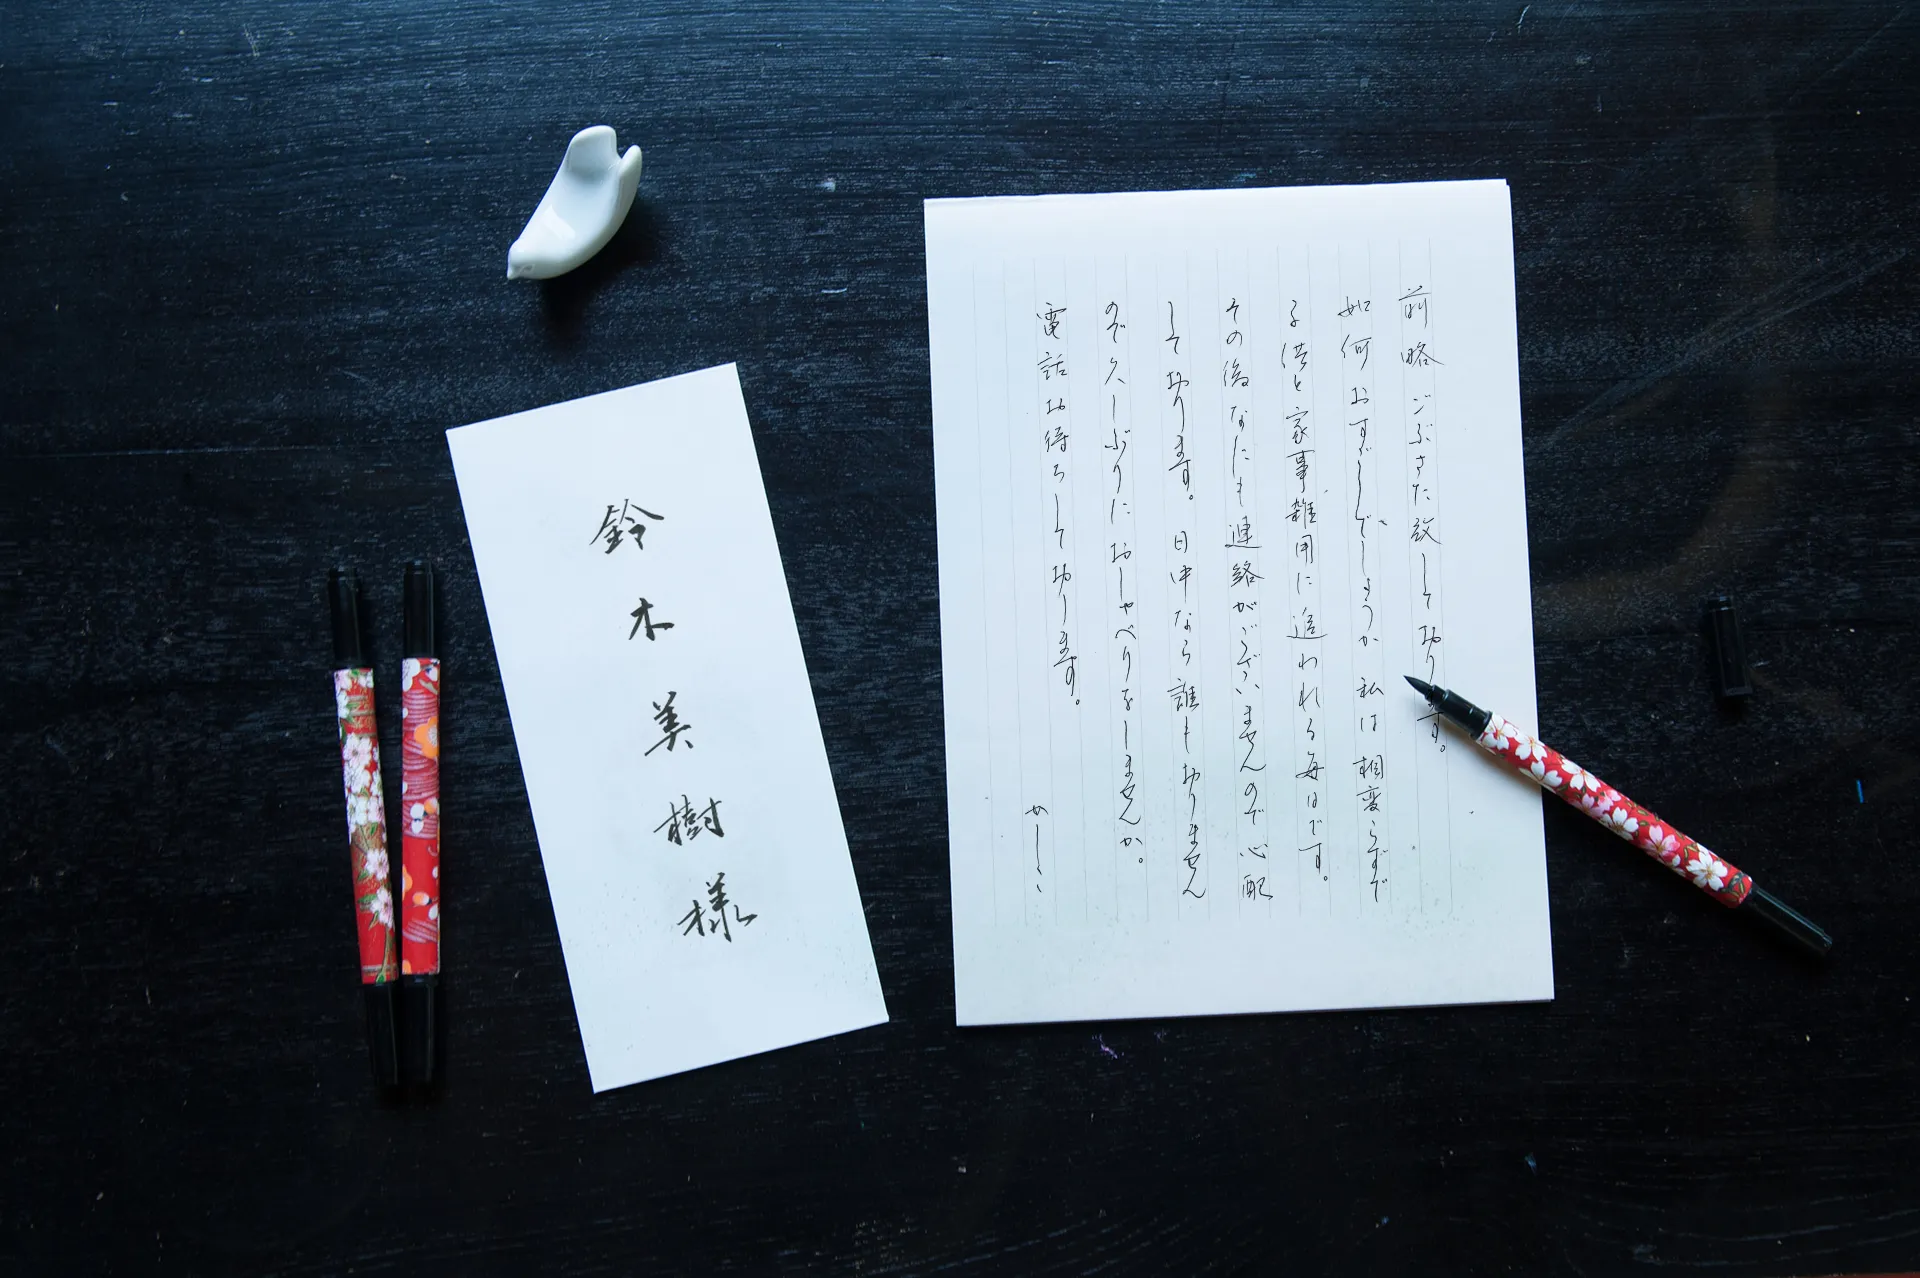 前略 ごぶさた致しております。
如何おすごしでしょうか 私は相変らずで
子供と家事雑用に追われる毎日です。
その後なにも連絡がございませんので心配
しております。日中なら誰もおりません
ので久しぶりにおしゃべりをしませんか。
電話お待ちしております。
かしこ
鈴木美樹様